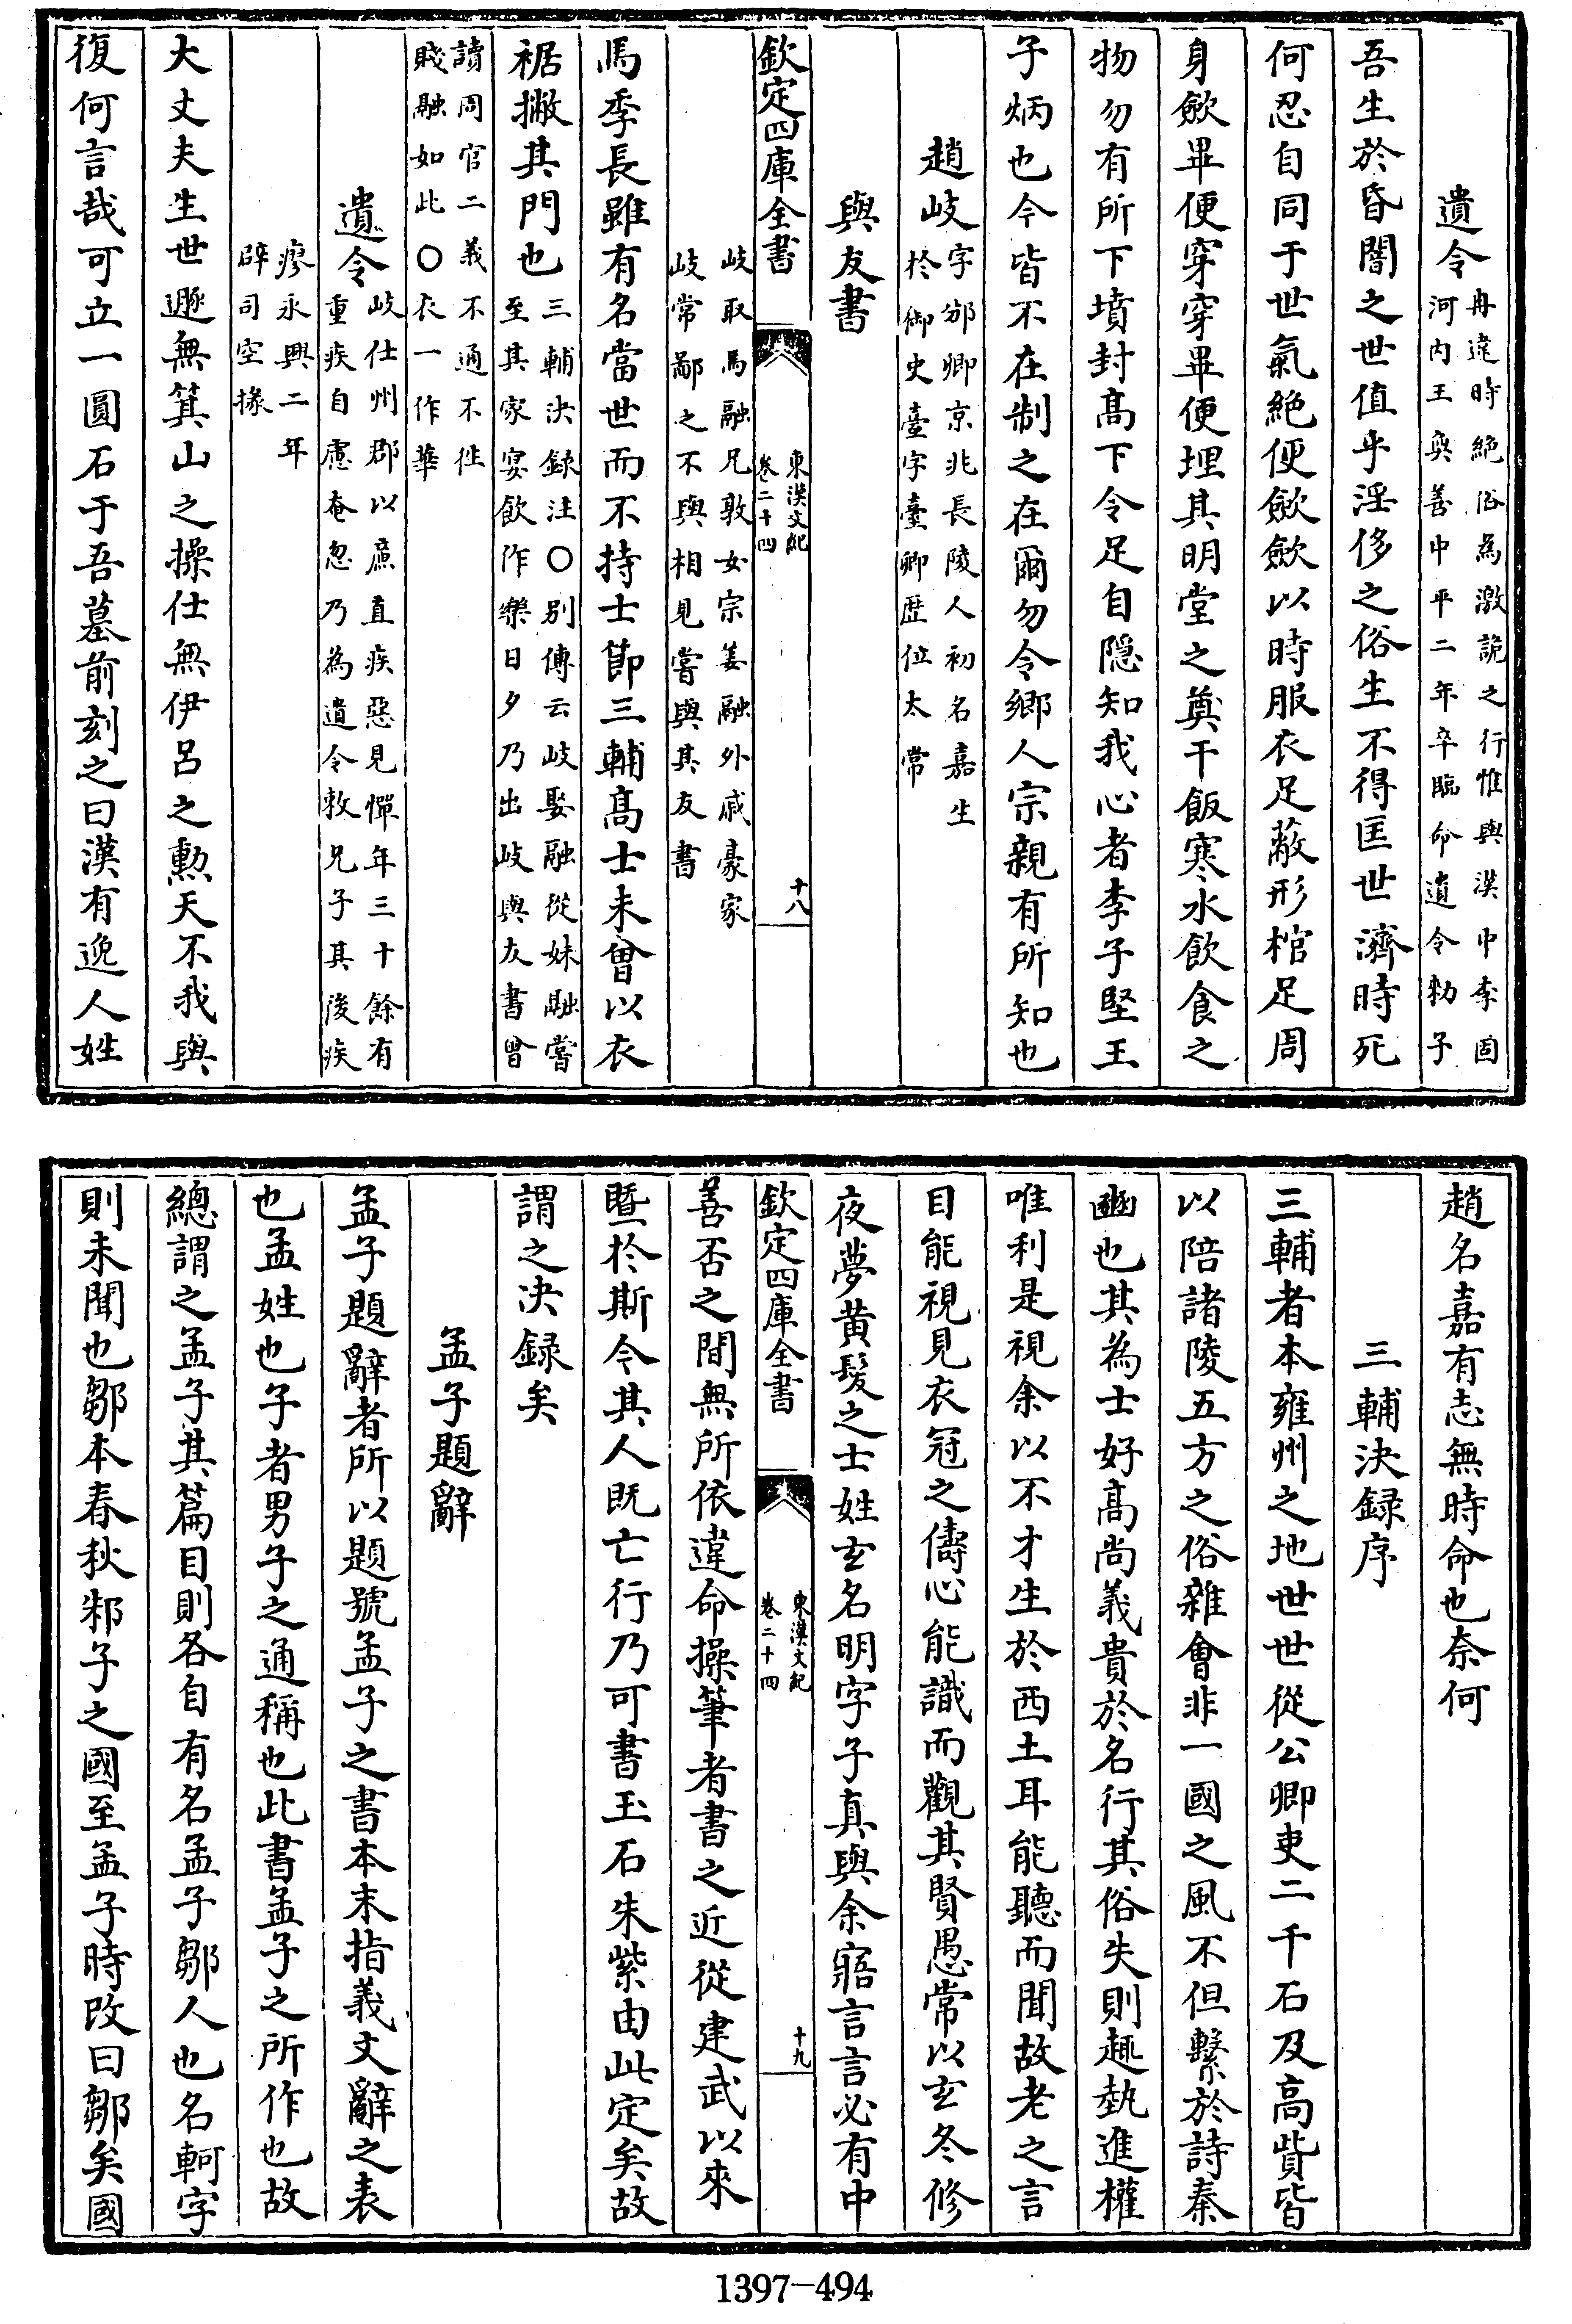 遺令冉違時絶俗為激詭之行惟與漢中李固
河内王奐善中平二年卒臨命遺令勅子
吾生於昏闇之世值乎淫侈之俗生不得匡世濟時死
何忍自同于世氣絶便歛歛以時服衣足蔽形棺足周
身歛畢便穿穿畢便埋其明堂之奠干飯寒水飲食之
物勿有所下墳封髙下令足自隠知我心者李子堅王
子炳也今皆不在制之在爾勿令鄉人宗親有所知也
趙岐字邠卿京兆長陵人初名嘉生
於御史臺字臺卿歴位太常
與友書
岐取馬融兄敦女宗姜融外戚豪家
岐常鄙之不與融相見嘗與其友書
欽定四庫全書
東漢文紀
卷二十四
十八
馬季長雖有名當世而不持士節三輔髙士未曾以衣
裾撇其門也三輔決録注○别傳云岐娶融從妹融嘗
至其家宴飲作樂日夕乃出岐與友書曾
讀周官二義不通不徃
賤融如此○衣一作華
遺令岐仕州郡以㢘直疾惡見憚年三十餘有
重疾自慮奄忽乃為遺令敕兄子其後疾
瘳永興二年
辟司空掾
大丈夫生世遯無箕山之操仕無伊呂之勲天不我與
復何言哉可立一圓石于吾墓前刻之曰漢有逸人姓
趙名嘉有志無時命也奈何
三輔決録序
三輔者本雍州之地世世從公卿吏二千石及高貲皆
以陪諸陵五方之俗雜會非一國之風不但繫於詩秦
豳也其為士好髙尚義貴於名行其俗失則趣埶進權
唯利是視余以不才生於西土耳能聽而聞故老之言
目能視見衣冠之儔心能識而觀其賢愚常以玄冬修
夜夢黄髮之士姓玄名明字子真與余寤言言必有中
欽定四庫全書
東漢文紀
卷二十四
十九
善否之間無所依違命操筆者書之近從建武以來
暨於斯今其人既亡行乃可書玉石朱紫由此定矣故
謂之決録矣
孟子題辭
孟子題辭者所以題號孟子之書本末指義文辭之表
也孟姓也子者男子之通稱也此書孟子之所作也故
總謂之孟子其篇目則各自有名孟子鄒人也名軻字
則未聞也鄒本春秋邾子之國至孟子時改曰鄒矣國
1397-494